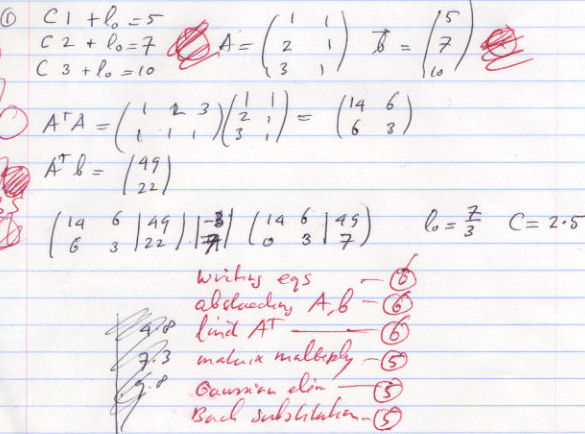 ① C 1 + l₀ = 5
C 2 + l₀ = 7
C 3 + l₀ = 10
A = ( 1 1 ; 2 1 ; 3 1 ) b⃗ = ( 5 ; 7 ; 10 )
AᵀA = ( 1 2 3 ; 1 1 1 ) ( 1 1 ; 2 1 ; 3 1 ) = ( 14 6 ; 6 3 )
Aᵀb = ( 49 ; 22 )
( 14 6 | 49 ; 6 3 | 22 ) ( 14 6 | 49 ; 0 3 | 7 ) l₀ = 7/3 C = 2.5
writing eqs — ⑥
A, b — ⑥
find Aᵀ — ⑥
matrix multiply — ⑤
Gaussian elim — ⑤
Back substitution — ⑤
4.8
7.3
9.8